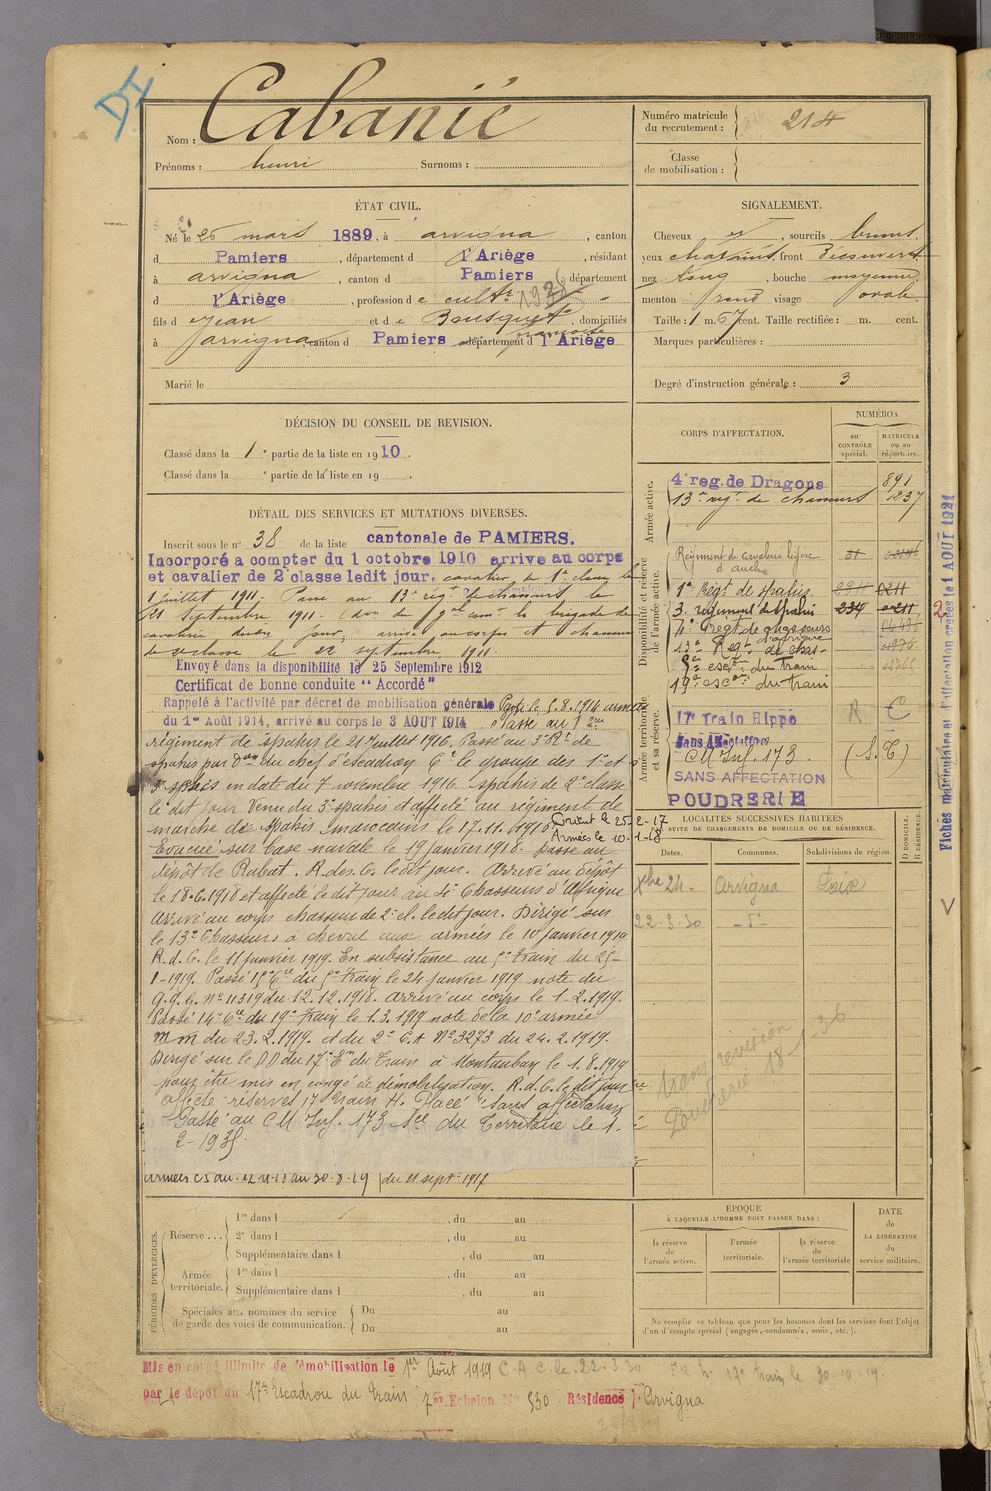 DI
Nom : Cabanié
Prénoms : henri Surnoms :
Numéro matricule du recrutement : 214
Classe de mobilisation :
ÉTAT CIVIL.
Né le 26 mars 1889, à arvigna, canton
d Pamiers, département d l'Ariège, résidant
à arvigna, canton d Pamiers département
d l'Ariège, profession de cultr
fils d Jean et de Bousquet françoise, domiciliés
à arvigna, canton d Pamiers département d l'Ariège
Marié le
SIGNALEMENT.
Cheveux et, sourcils bruns,
yeux chatains, front Découvert
nez long, bouche moyenne
menton rond visage ovale
Taille : 1 m. 67 cent. Taille rectifiée : m. cent.
Marques particulières :
Degré d'instruction générale : 3
DÉCISION DU CONSEIL DE REVISION.
Classé dans la 1e partie de la liste en 1910.
Classé dans la e partie de la liste en 19 .
DÉTAIL DES SERVICES ET MUTATIONS DIVERSES.
Inscrit sous le n° 38 de la liste cantonale de PAMIERS.
Incorporé a compter du 1 octobre 1910 arrive au corps
et cavalier de 2e classe ledit jour. cavalier de 1e classe le
1 juillet 1911. Passé au 13e régt de chasseurs le
21 Septembre 1911. (don du gal comt la brigade de
cavalerie dudit jour, arrivé au corps et chasseur
de 2e classe le 22 septembre 1911.
Envoyé dans la disponibilité le 25 Septembre 1912
Certificat de bonne conduite "Accordé"
Rappelé à l'activité par décret de mobilisation générale Parti le 5.8.1914 armée
du 1er Août 1914, arrivé au corps le 3 AOUT 1914 Passé au 1er
régiment de spahis le 21 Juillet 1916. Passé au 3e Rt de
spahis par Don du chef d'escadron Ct le groupe des 1er et
3e spahis en date du 7 novembre 1916. Spahis de 2e classe
le dit jour. Venu du 3e spahis et affecté au régiment de
marche de Spahis marocains le 17.11.1916. Orient le 25-2-17
Armées le 10-1-18
Evacué sur base navale le 19 janvier 1918. Passé au
dépôt de Rabat. R. des. C. ledit jour. Arrivé au dépôt
le 18.6.1918 et affecté ledit jour au 4e Chasseurs d'Afrique
Arrivé au corps chasseur de 2e cl. ledit jour. Dirigé sur
le 13e Chasseurs à cheval aux armées le 10 janvier 1919
R. d. C. le 11 janvier 1919. En subsistance au 5e train du 25-
1-1919. Passé 15e Cie du 5e train le 24 janvier 1919 note du
G.Q.G. N° 11319 du 12.12.1918. Arrivé au corps le 1.2.1919.
Passé 14e Cie du 19e Train le 1.3.1919 note de la 10e armée
M m du 23.2.1919. et du 2e C.A N° 3273 du 24.2.1919.
Dirigé sur le DD du 17e Em du Train à Montauban le 1.8.1919
pour être mis en congé de démobilisation. R.d.C. le dit jour
Affecté réserves 17 Train H. Placé "Sans affectation
Passé au CM Inf. 173 Sce du Territoire le 1.
2-1935
du 11 sept 1917
CORPS D'AFFECTATION.
NUMÉROS
au CONTRÔLE spécial.
MATRICULE ou au répertoire.
Armée active.
4e reg. de Dragons 891
13e regt de chasseurs 1237
Disponibilité et réserve de l'armée active.
Régiment de cavalerie légère d'auch
1e Régt de spahis 0211
3. régiment de spahi 234 0211
4e Regt de chasseurs d'afrique
13e Regt de chas-
5e escon du Train
19e escon du train
Armée territoriale et sa réserve.
17e Train Hippo R C
Sans Affectation
CM Inf. 173 (S.T)
SANS AFFECTATION
POUDRERIE
LOCALITÉS SUCCESSIVES HABITÉES
PAR SUITE DE CHANGEMENTS DE DOMICILE OU DE RÉSIDENCE.
Dates. Communes. Subdivisions de région. D DOMICILE. R RÉSIDENCE.
Xbre 24. Arvigna Foix
22-3-30 - d° -
trans revision
Poudrerie 18-1-36
Fiches matriculaire et d'affectation créées le 1 AOUT 1921
PÉRIODES D'EXERCICES.
Réserve ... 1re dans l , du au
2e dans l , du au
Supplémentaire dans l , du au
Armée territoriale. 1re dans l , du au
Supplémentaire dans l , du au
Spéciales aux hommes du service de garde des voies de communication. Du au
Du au
ÉPOQUE
À LAQUELLE L'HOMME DOIT PASSER DANS :
la réserve de l'armée active.
l'armée territoriale.
la réserve de l'armée territoriale
DATE de LA LIBÉRATION du service militaire.
Ne remplir ce tableau que pour les hommes dont les services font l'objet
d'un décompte spécial (engagés, condamnés, omis, etc.).
Mis en congé illimité de démobilisation le 1er Août 1919 C.A.C. le 22-3-30
par le dépôt du 17e Escadron du Train 7e Echelon N° 530 Résidence Arvigna